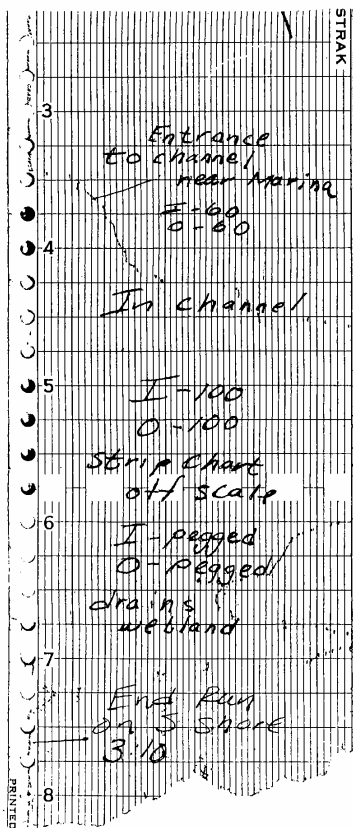 STRAK
3
Entrance
to channel
near Marina
I-60
O-60
4
In channel
5
I-100
O-100
Strip Chart
off scale
6
I-pegged
O-pegged
drains
wetland
7
End Run
on S shore
3:10
8
PRINTED